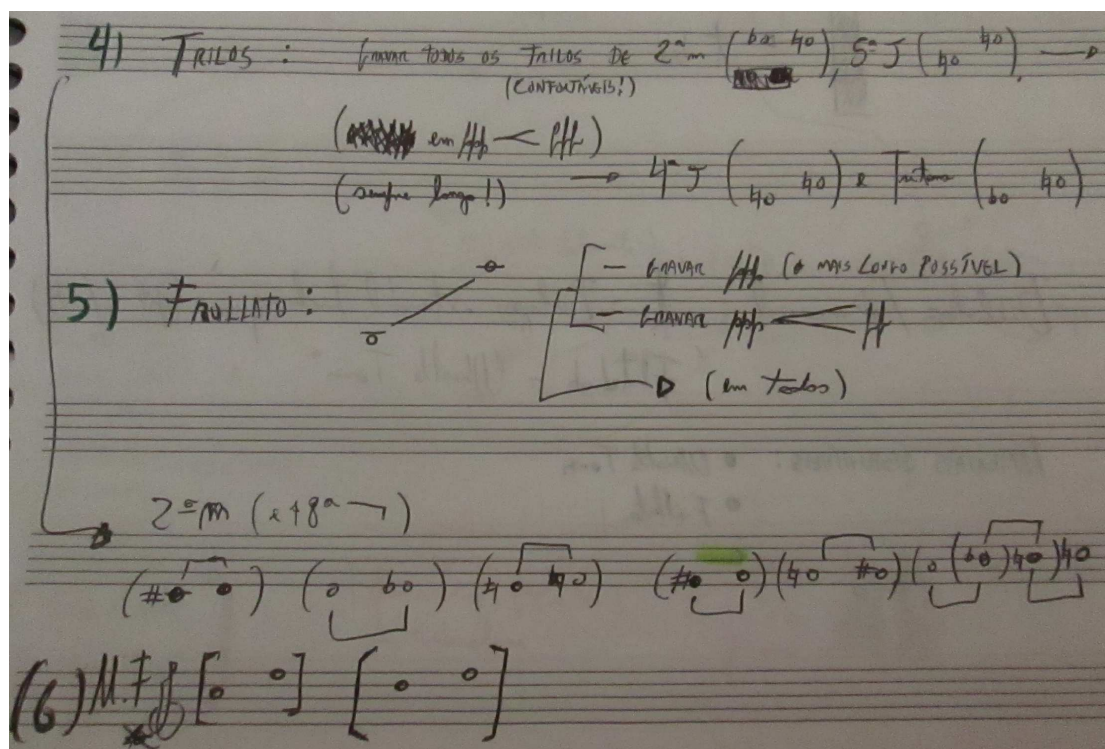 4) TRILOS : GRAVAR TODOS OS TRILOS DE 2ª m (♭o ♮o), 5ª J (♮o ♮o),
(CONFORTÁVEIS!)
( em ppp < fff)
(sempre longo!) → 4ª J (♮o ♮o) e Trítono (♭o ♮o)
5) FRULLATO :
– GRAVAR fff (O MAIS LONGO POSSÍVEL)
– GRAVAR ppp < ff
(em todos)
2ª m (e +8ª ¬)
(#o o) (o ♭o) (♮o ♮o) (#o o) (♮o #o) (o (♭o) ♮o) ♮o
(6) M.F [o o] [o o]